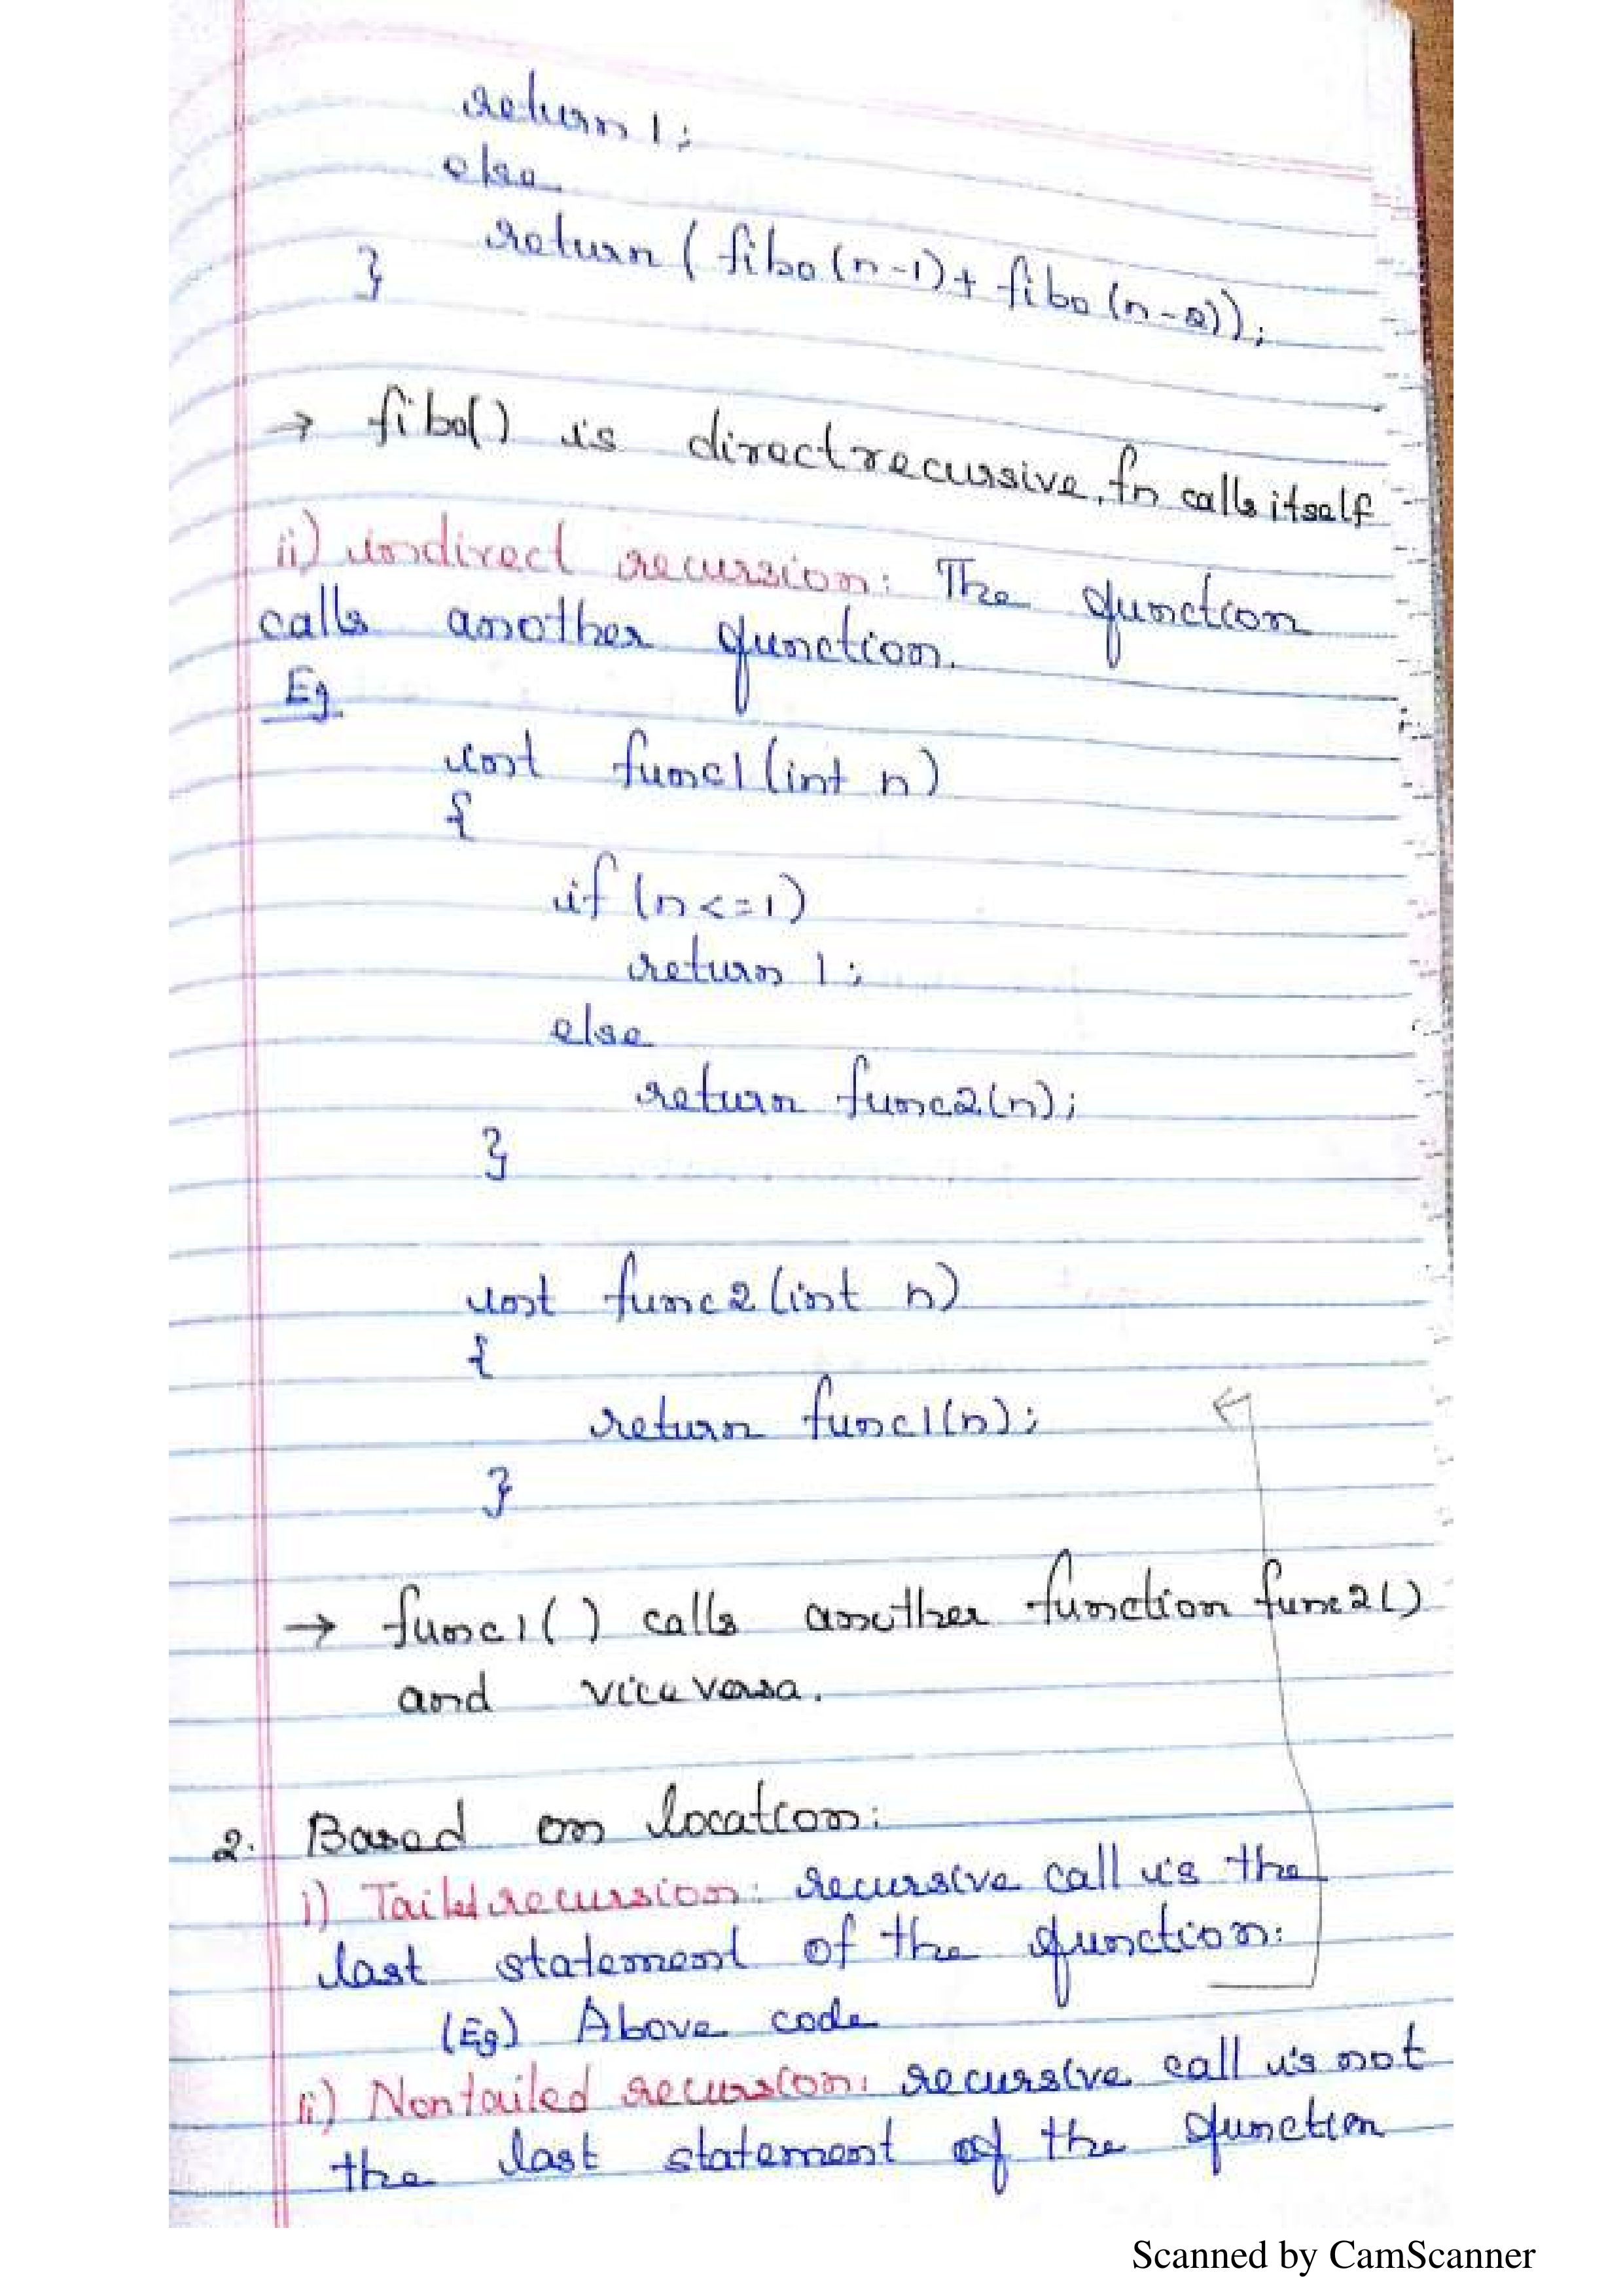 return 1;
else
return (fibo(n-1)+ fibo(n-2));
}
→ fibo() is direct recursive, fn calls itself
ii) indirect recursion: The function
calls another function.
Eg
int func1(int n)
{
if (n<=1)
return 1;
else
return func2(n);
}
int func2(int n)
{
return func1(n);
}
→ func1() calls another function func2()
and vice versa.
2. Based on location:
i) Tailed recursion: recursive call is the
last statement of the function:
(Eg) Above code
ii) Non tailed recursion: recursive call is not
the last statement of the function
Scanned by CamScanner